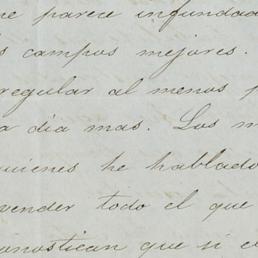 me parece infundada
s campos mejores.
regular al menos p
a dia mas. Los m
quienes he hablado
vender todo el que
onostican que si c